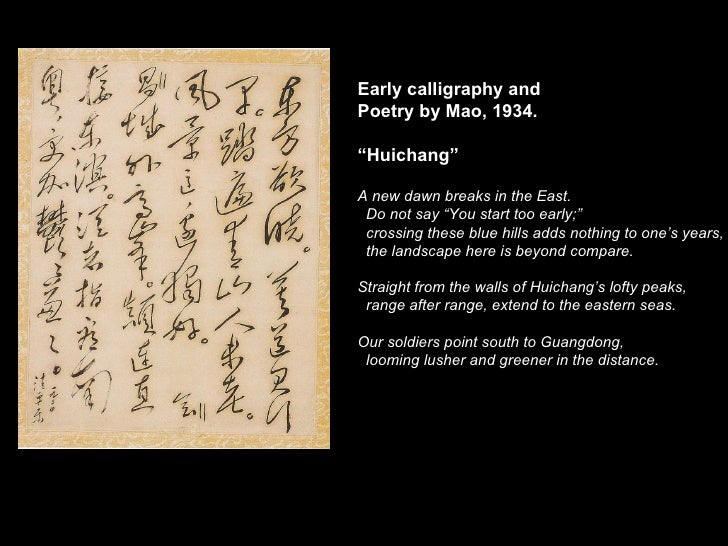 东方欲晓。莫道君行
早。踏遍青山人未老。
风景这边独好。会
昌城外高峰。颠连直
接东溟。战士指看南
粤,更加鬱々葱々。
清平乐
Early calligraphy and
Poetry by Mao, 1934.
“Huichang”
A new dawn breaks in the East.
Do not say “You start too early;”
crossing these blue hills adds nothing to one’s years,
the landscape here is beyond compare.
Straight from the walls of Huichang’s lofty peaks,
range after range, extend to the eastern seas.
Our soldiers point south to Guangdong,
looming lusher and greener in the distance.